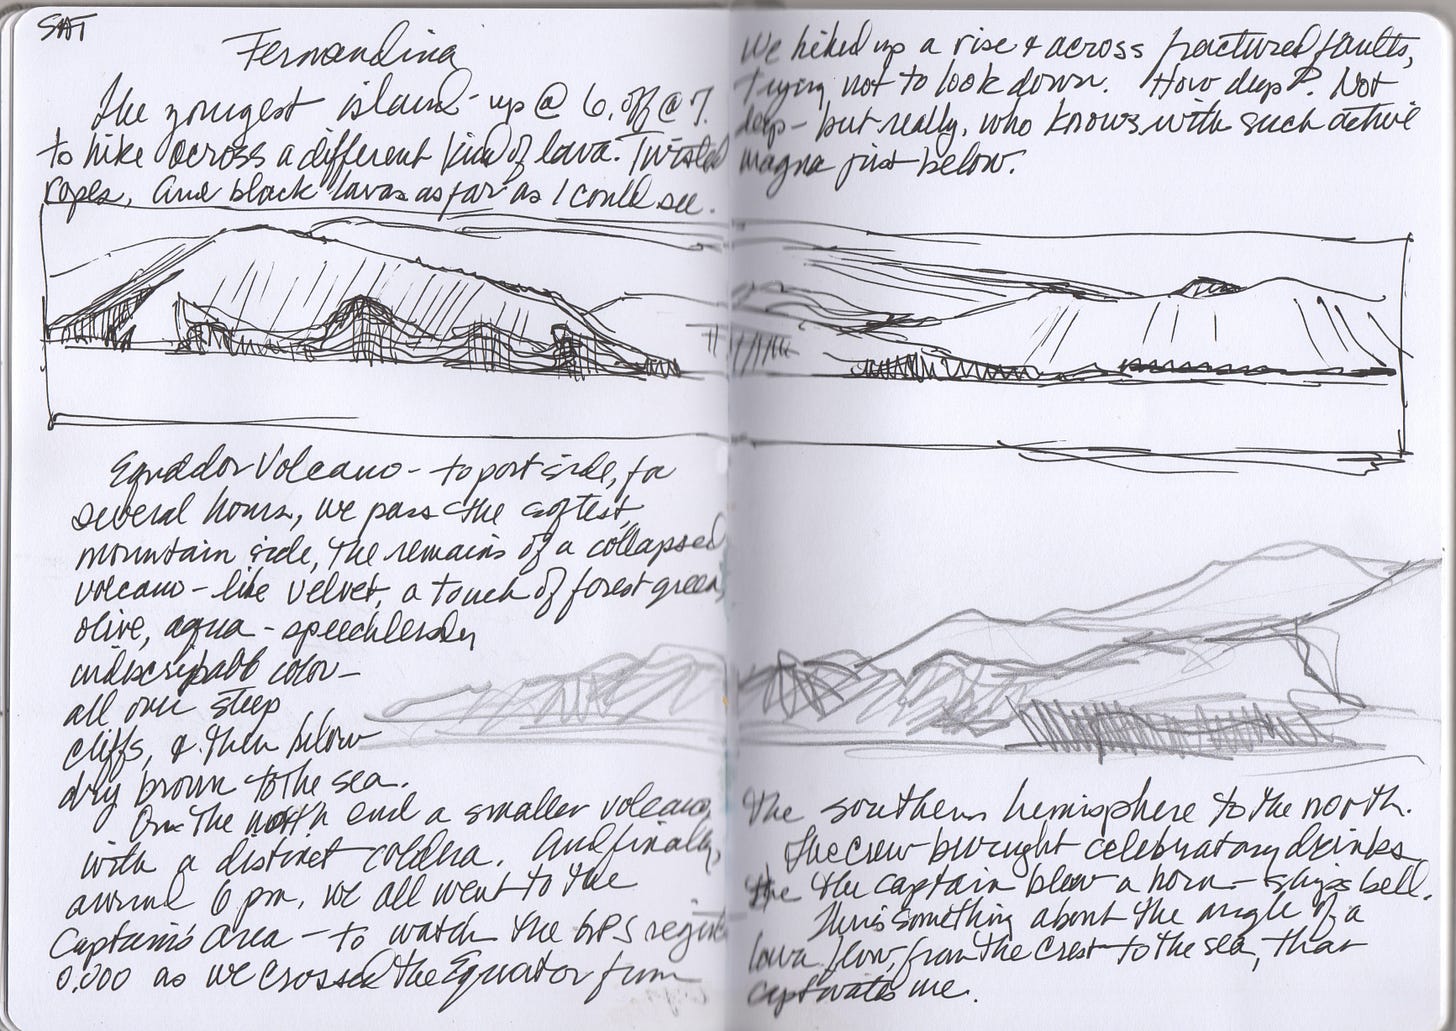 SAT
Fernandina
The youngest island - up @ 6, off @ 7.
to hike across a different kind of lava. Twisted
ropes, and black lavas as far as I could see.
We hiked up a rise & across fractured faults,
Trying not to look down. How deep? Not
deep - but really, who knows with such active
magna just below.
Equador Volcano - to port side, for
several hours, we pass the softest
mountain side, the remains of a collapsed
volcano - like velvet, a touch of forest green,
olive, aqua - speechlessly
indiscribable color -
all over steep
cliffs, & then below
dry brown to the sea.
On the north end a smaller volcano,
with a distinct caldera. And finally,
around 6 pm, we all went to the
Captain's area - to watch the GPS register
0.000 as we crossed the Equator from
the southern hemisphere to the north.
The crew brought celebratory drinks
the captain blew a horn - ships bell.
There's something about the angle of a
lava flow, from the crest to the sea, that
captivates me.